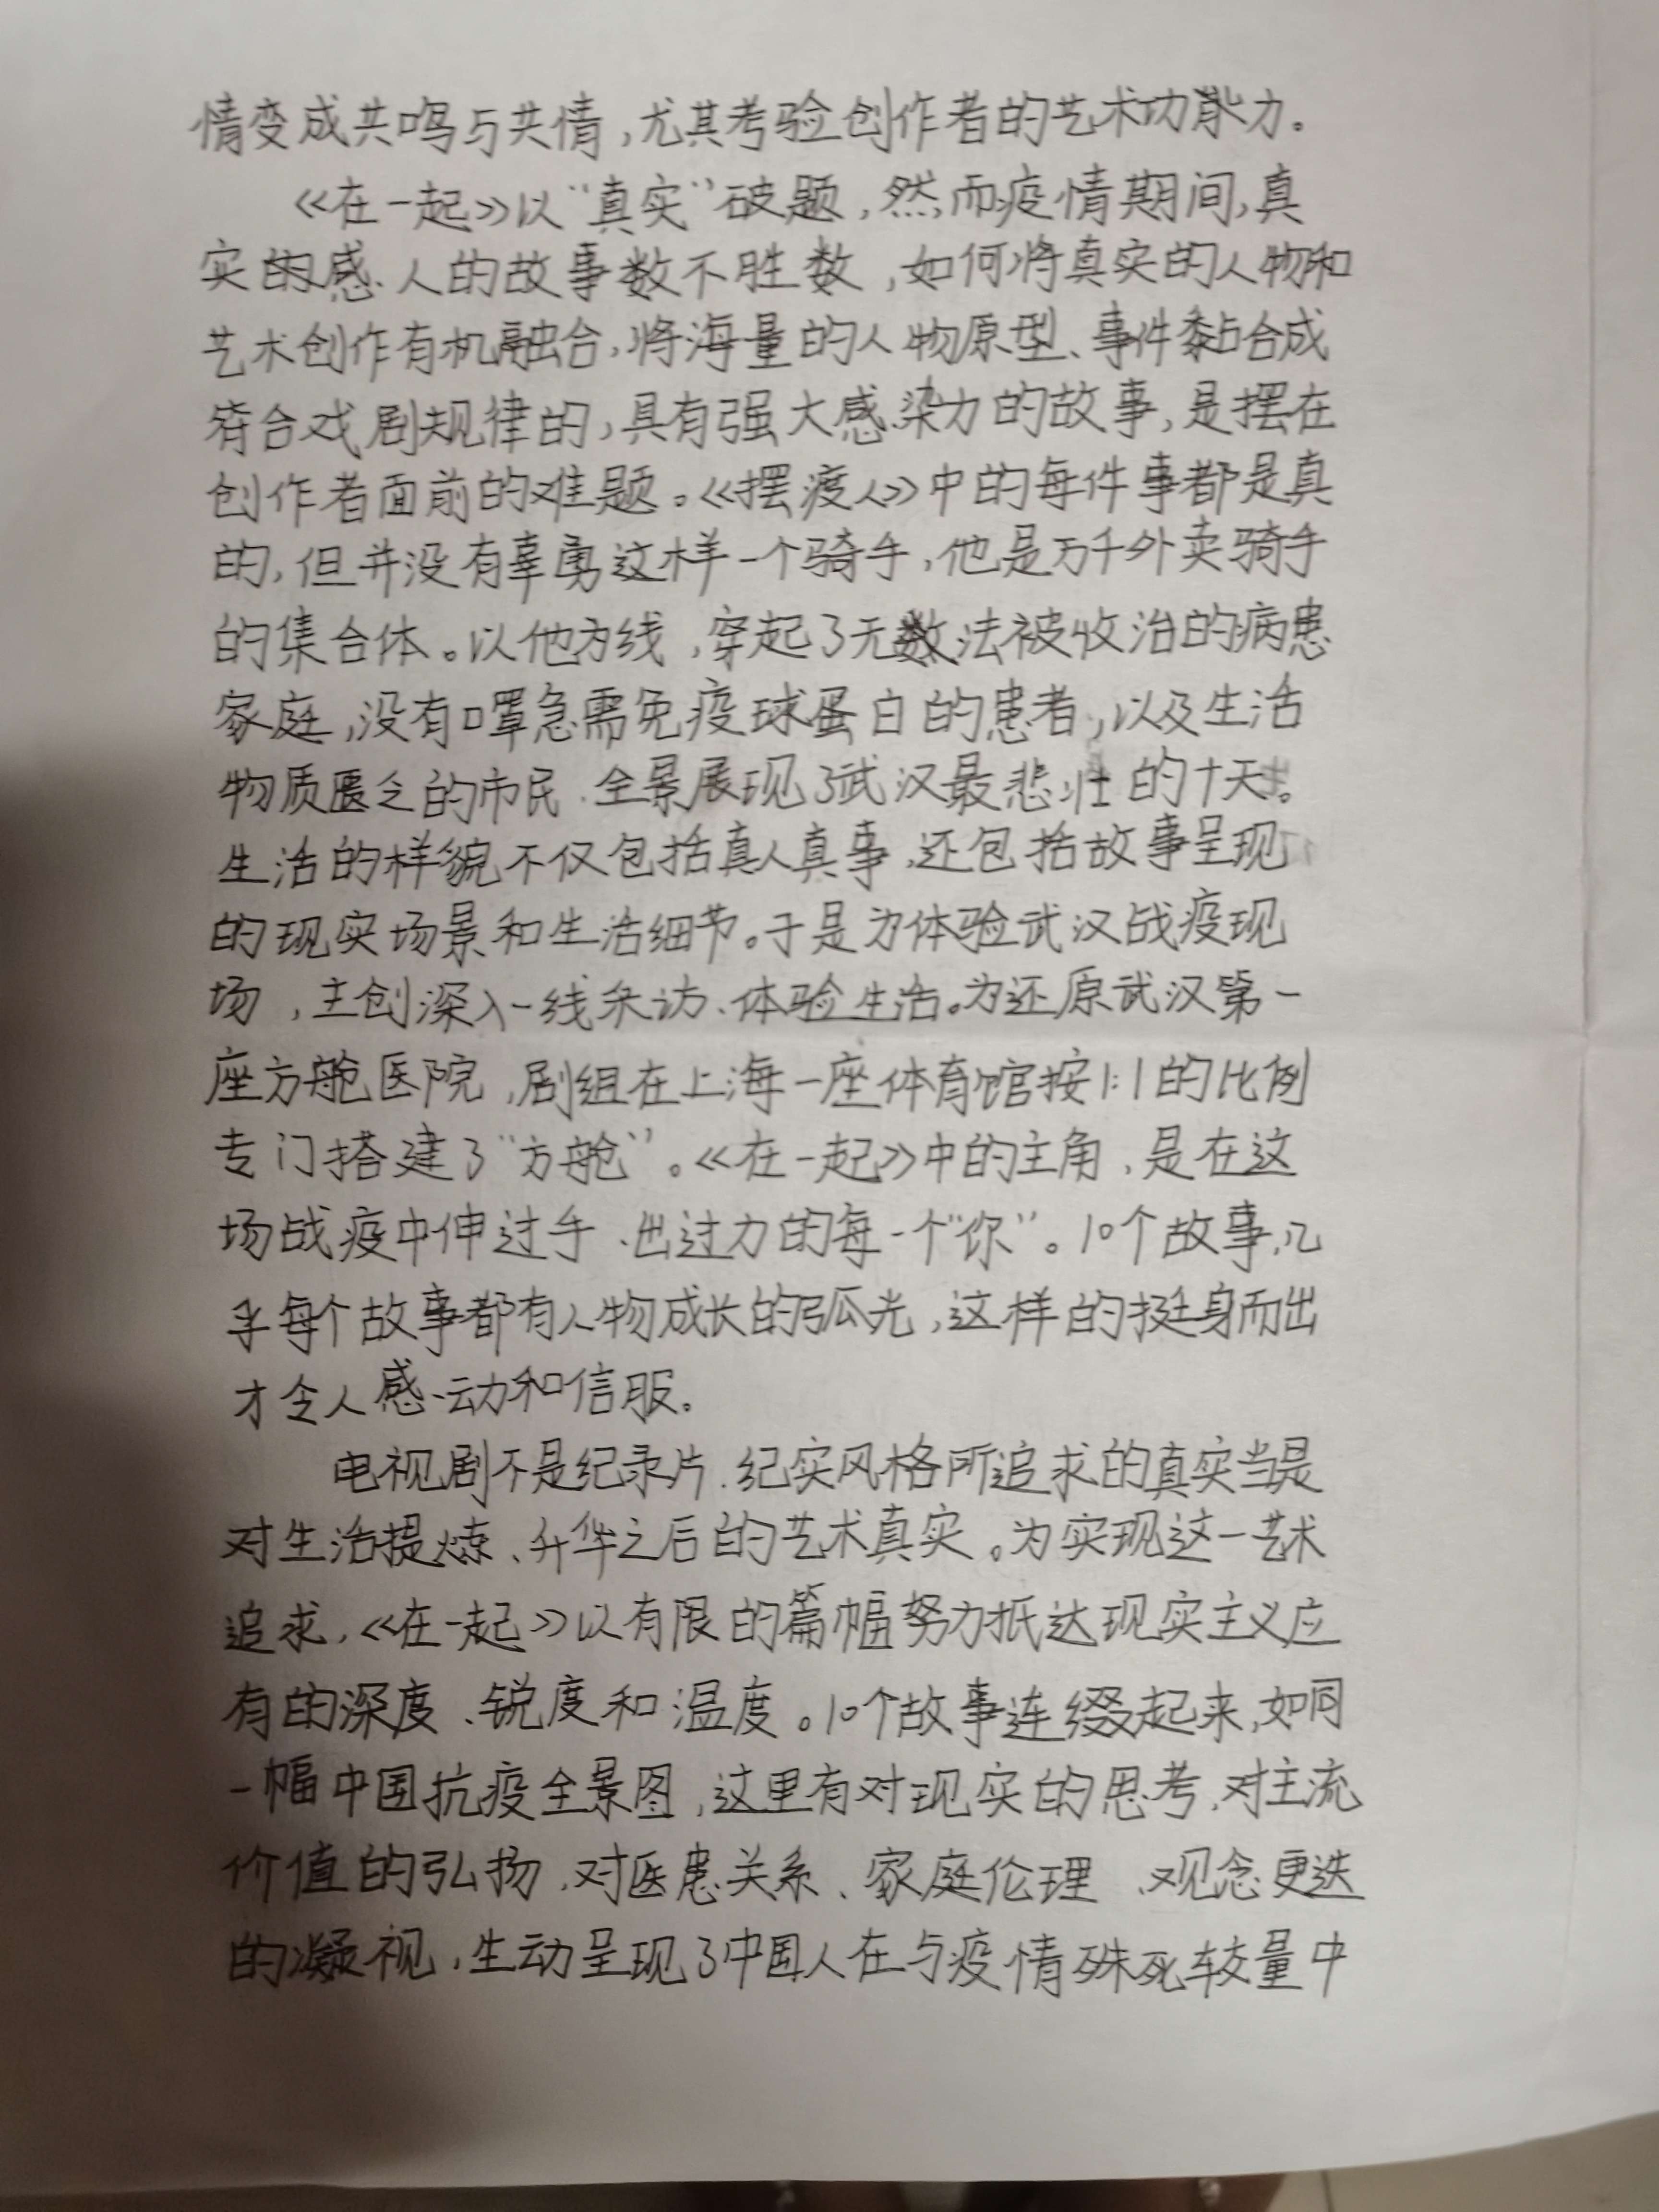 情变成共鸣与共情，尤其考验创作者的艺术功能力。
《在一起》以“真实”破题，然而疫情期间，真
实的感人的故事数不胜数，如何将真实的人物和
艺术创作有机融合，将海量的人物原型、事件黏合成
符合戏剧规律的，具有强大感染力的故事，是摆在
创作者面前的难题。《摆渡人》中的每件事都是真
的，但并没有辜勇这样一个骑手，他是万千外卖骑手
的集合体。以他为线，穿起了无数法被收治的病患
家庭，没有口罩急需免疫球蛋白的患者，以及生活
物质匮乏的市民，全景展现了武汉最悲壮的十天。
生活的样貌不仅包括真人真事，还包括故事呈现
的现实场景和生活细节。于是为体验武汉战疫现
场，主创深入一线采访、体验生活。为还原武汉第一
座方舱医院，剧组在上海一座体育馆按1:1的比例
专门搭建了“方舱”。《在一起》中的主角，是在这
场战疫中伸过手、出过力的每一个“你”。10个故事，几
乎每个故事都有人物成长的弧光，这样的挺身而出
才令人感动和信服。
电视剧不是纪录片，纪实风格所追求的真实当是
对生活提炼、升华之后的艺术真实。为实现这一艺术
追求，《在一起》以有限的篇幅努力抵达现实主义应
有的深度、锐度和温度。10个故事连缀起来，如同
一幅中国抗疫全景图，这里有对现实的思考，对主流
价值的弘扬，对医患关系、家庭伦理、观念更迭
的凝视，生动呈现了中国人在与疫情殊死较量中